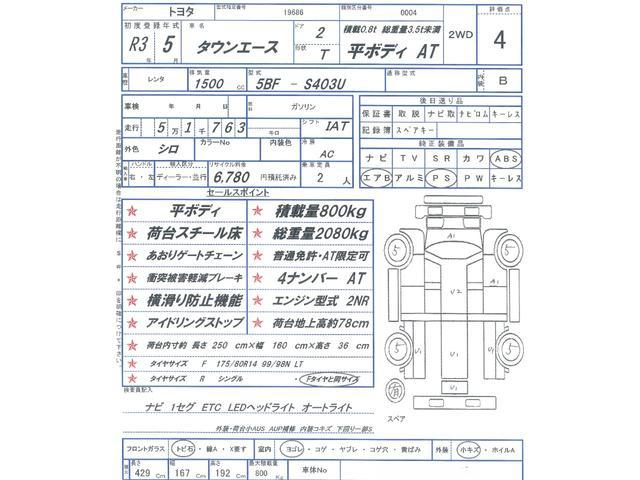 メーカー トヨタ 型式指定番号 19686 類別区分番号 0004 評価点
初度登録年式 車名 ドア 2 積載0.8t 総重量3.5t未満 2WD 4
R3 年 5 月 タウンエース 形状 T 平ボディ AT
車歴 レンタ 排気量 1500 CC 型式 5BF - S403U 通称型式 内装 B
車検 年 月 日 燃料 ガソリン 後日送り品
走行 5万1千763 キロ シフト IAT 保証書 取説 ナビ取 ナビロム キーレス
記録簿 スペアキー
外色 シロ カラーNo 内装色 冷房 AC 純正装備品
ハンドル 右・左 輸入区分 ディーラー・並行 リサイクル料金 6,780 円預託済み 乗車定員 2 人 ナビ TV SR カワ ABS
エアB アルミ PS PW キーレス
セールスポイント
☆ 平ボディ ☆ 積載量800kg
☆ 荷台スチール床 ☆ 総重量2080kg
☆ あおりゲートチェーン ☆ 普通免許・AT限定可
☆ 衝突被害軽減ブレーキ ☆ 4ナンバー AT
☆ 横滑り防止機能 ☆ エンジン型式 2NR
☆ アイドリングストップ ☆ 荷台地上高約78cm
☆ 荷台内寸約 長さ 250 cm×幅 160 cm×高さ 36 cm
☆ タイヤサイズ F 175/80R14 99/98N LT
☆ タイヤサイズ R シングル ・ Fタイヤと同サイズ
走行距離が不明の場合は走行距離欄に $ * 印を明確につけて下さい。
A1
5 5
U2
5 5
U1 U1 U1
有
スペア
検査員記入
ナビ 1セグ ETC LEDヘッドライト オートライト
外装・荷台小AUS AUP補修 内装コキズ 下回り一部S
フロントガラス トビ石・線A・X要す 室内 ヨゴレ・コゲ・ヤブレ・コゲ穴・黄ばみ 外装 小キズ・ホイルA
長さ 429 Cm 幅 167 Cm 高さ 192 Cm 最大積載量 800 Kg 車体No